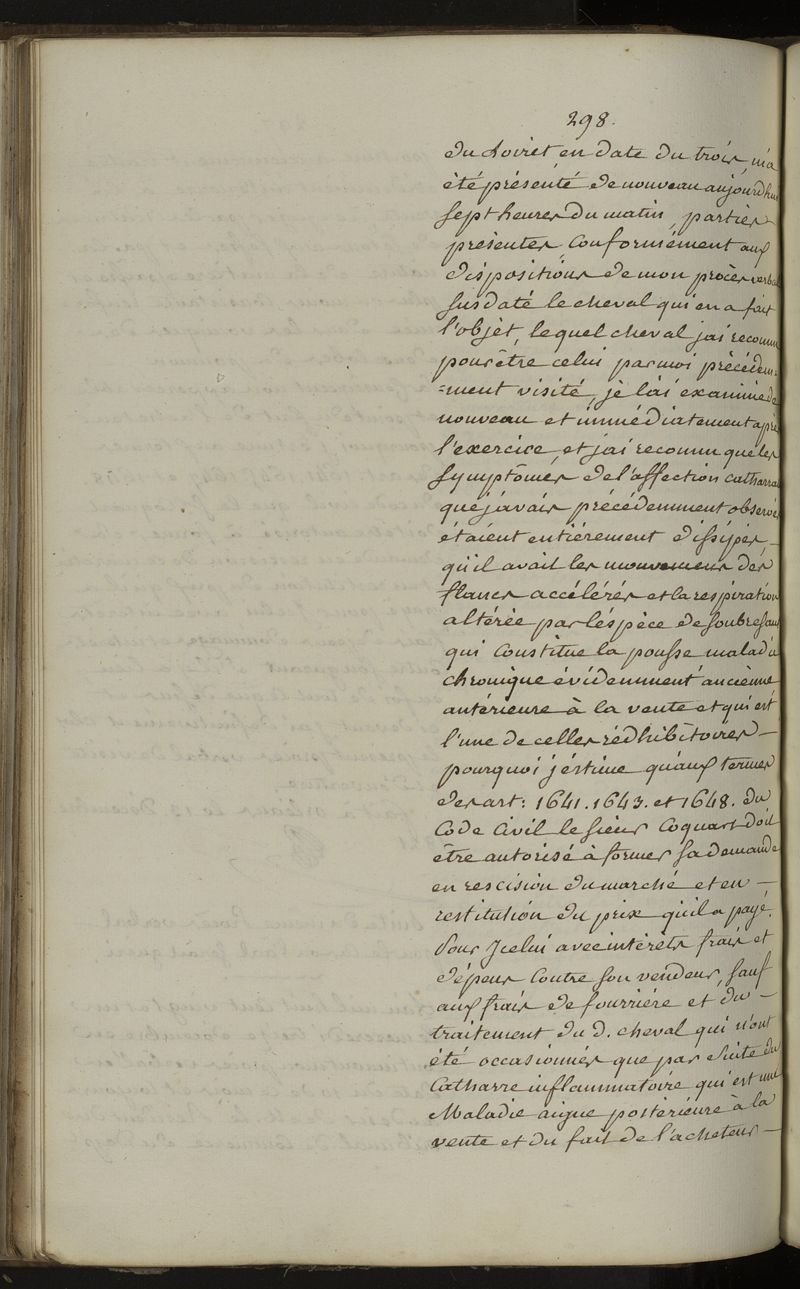 298.
du Loiret, en date du trois, m'a
été présenté de nouveau aujourdhui
sept heures du matin, parties
présentes, conformément aux
dispositions de mon procès verbal
susdaté le cheval qui en a fait
l'objèt, lequel cheval j'ai reconnu
pour être celui par moi précédem=
=ment visité, je l'ai examiné de
nouveau et immédiatement après
l'exercice, et j'ai reconnu que les
symptômes de l'affection catharrale
que j'avais précédemment observés
étaient entiérement dissipés —
qu'il avait les mouvemens des
flancs accélérés et la respiration
altérée par l'éspèce de soubresaut
qui constitue la pousse maladie
chronique évidemment anciènne
antérieure à la vente et qui est
l'une de celles rédhibitoires —
pourquoi j'éstime qu'aux termes
des art: 1641. 1643. et 1648. du
Code Civil le sieur Coquart doit
être autorisé à former sa demande
en rescision du marché et en —
restitution du prix qu'il a payé
pour Jcelui avec intérèts frais et
dépens contre son vendeur, sauf
aux frais de fourriére et du —
traitement du d. cheval qui n'ont
été occasionnés que par suite du
Catharre inflammatoire qui est une
Maladie aigue postérieure à la
vente et du fait de l'acheteur —